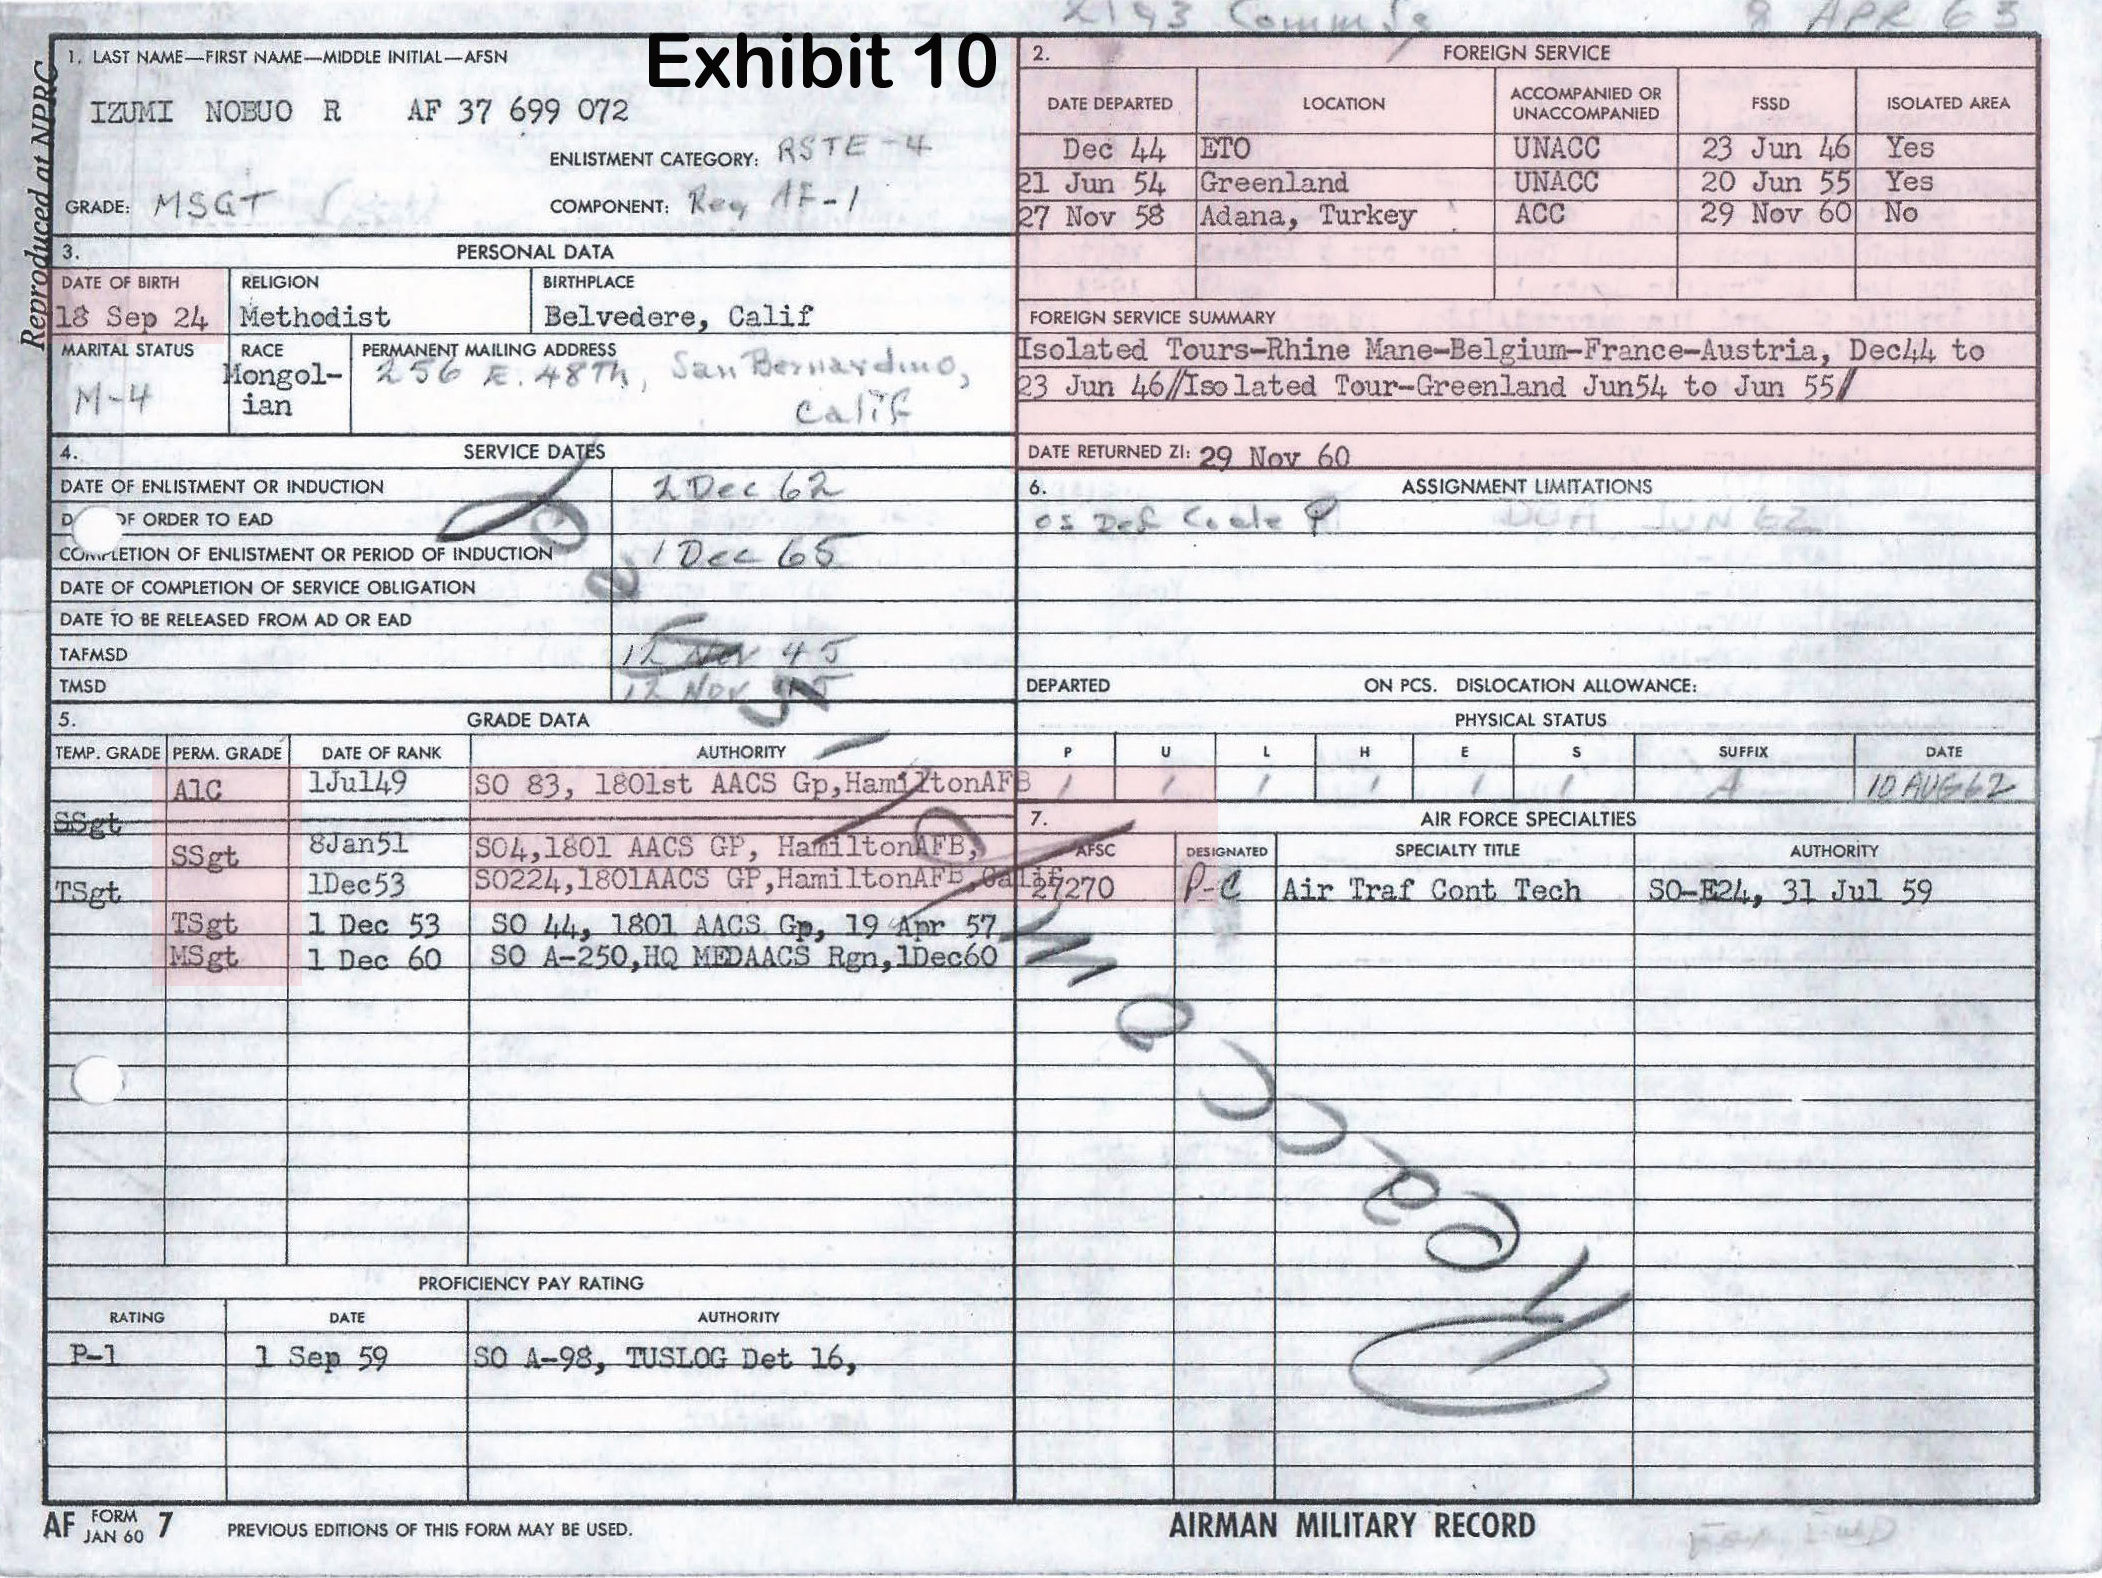 2193 Comm 8 APR 63
Exhibit 10
Reproduced at NPRC
1. LAST NAME—FIRST NAME—MIDDLE INITIAL—AFSN
IZUMI NOBUO R AF 37 699 072
ENLISTMENT CATEGORY: RSTE-4
GRADE: MSGT
COMPONENT: Reg AF-1
2. FOREIGN SERVICE
DATE DEPARTED LOCATION ACCOMPANIED OR UNACCOMPANIED FSSD ISOLATED AREA
Dec 44 ETO UNACC 23 Jun 46 Yes
21 Jun 54 Greenland UNACC 20 Jun 55 Yes
27 Nov 58 Adana, Turkey ACC 29 Nov 60 No
FOREIGN SERVICE SUMMARY
Isolated Tours-Rhine Mane-Belgium-France-Austria, Dec44 to
23 Jun 46//Isolated Tour-Greenland Jun54 to Jun 55/
DATE RETURNED ZI: 29 Nov 60
3. PERSONAL DATA
DATE OF BIRTH RELIGION BIRTHPLACE
18 Sep 24 Methodist Belvedere, Calif
MARITAL STATUS RACE PERMANENT MAILING ADDRESS
M-4 Mongol-
ian
256 E. 48Th, San Bernardino,
Calif
4. SERVICE DATES
DATE OF ENLISTMENT OR INDUCTION 2 Dec 62
OF ORDER TO EAD
COMPLETION OF ENLISTMENT OR PERIOD OF INDUCTION 1 Dec 65
DATE OF COMPLETION OF SERVICE OBLIGATION
DATE TO BE RELEASED FROM AD OR EAD
TAFMSD 12 Nov 45
TMSD 12 Nov 45
5. GRADE DATA
TEMP. GRADE PERM. GRADE DATE OF RANK AUTHORITY
A1C 1Jul49 SO 83, 1801st AACS Gp,HamiltonAFB
SSgt
SSgt 8Jan51 SO4,1801 AACS GP, HamiltonAFB,
TSgt 1Dec53 SO224,1801AACS GP,HamiltonAFB,Calif
TSgt 1 Dec 53 SO 44, 1801 AACS Gp, 19 Apr 57
MSgt 1 Dec 60 SO A-250,HQ MEDAACS Rgn,1Dec60
PROFICIENCY PAY RATING
RATING DATE AUTHORITY
P-1 1 Sep 59 SO A-98, TUSLOG Det 16,
6. ASSIGNMENT LIMITATIONS
OS Def Code P
DEPARTED ON PCS. DISLOCATION ALLOWANCE:
PHYSICAL STATUS
P U L H E S SUFFIX DATE
1 1 1 1 1 1 A 10 AUG 62
7. AIR FORCE SPECIALTIES
AFSC DESIGNATED SPECIALTY TITLE AUTHORITY
27270 P-C Air Traf Cont Tech SO-E24, 31 Jul 59
AF FORM JAN 60 7 PREVIOUS EDITIONS OF THIS FORM MAY BE USED.
AIRMAN MILITARY RECORD